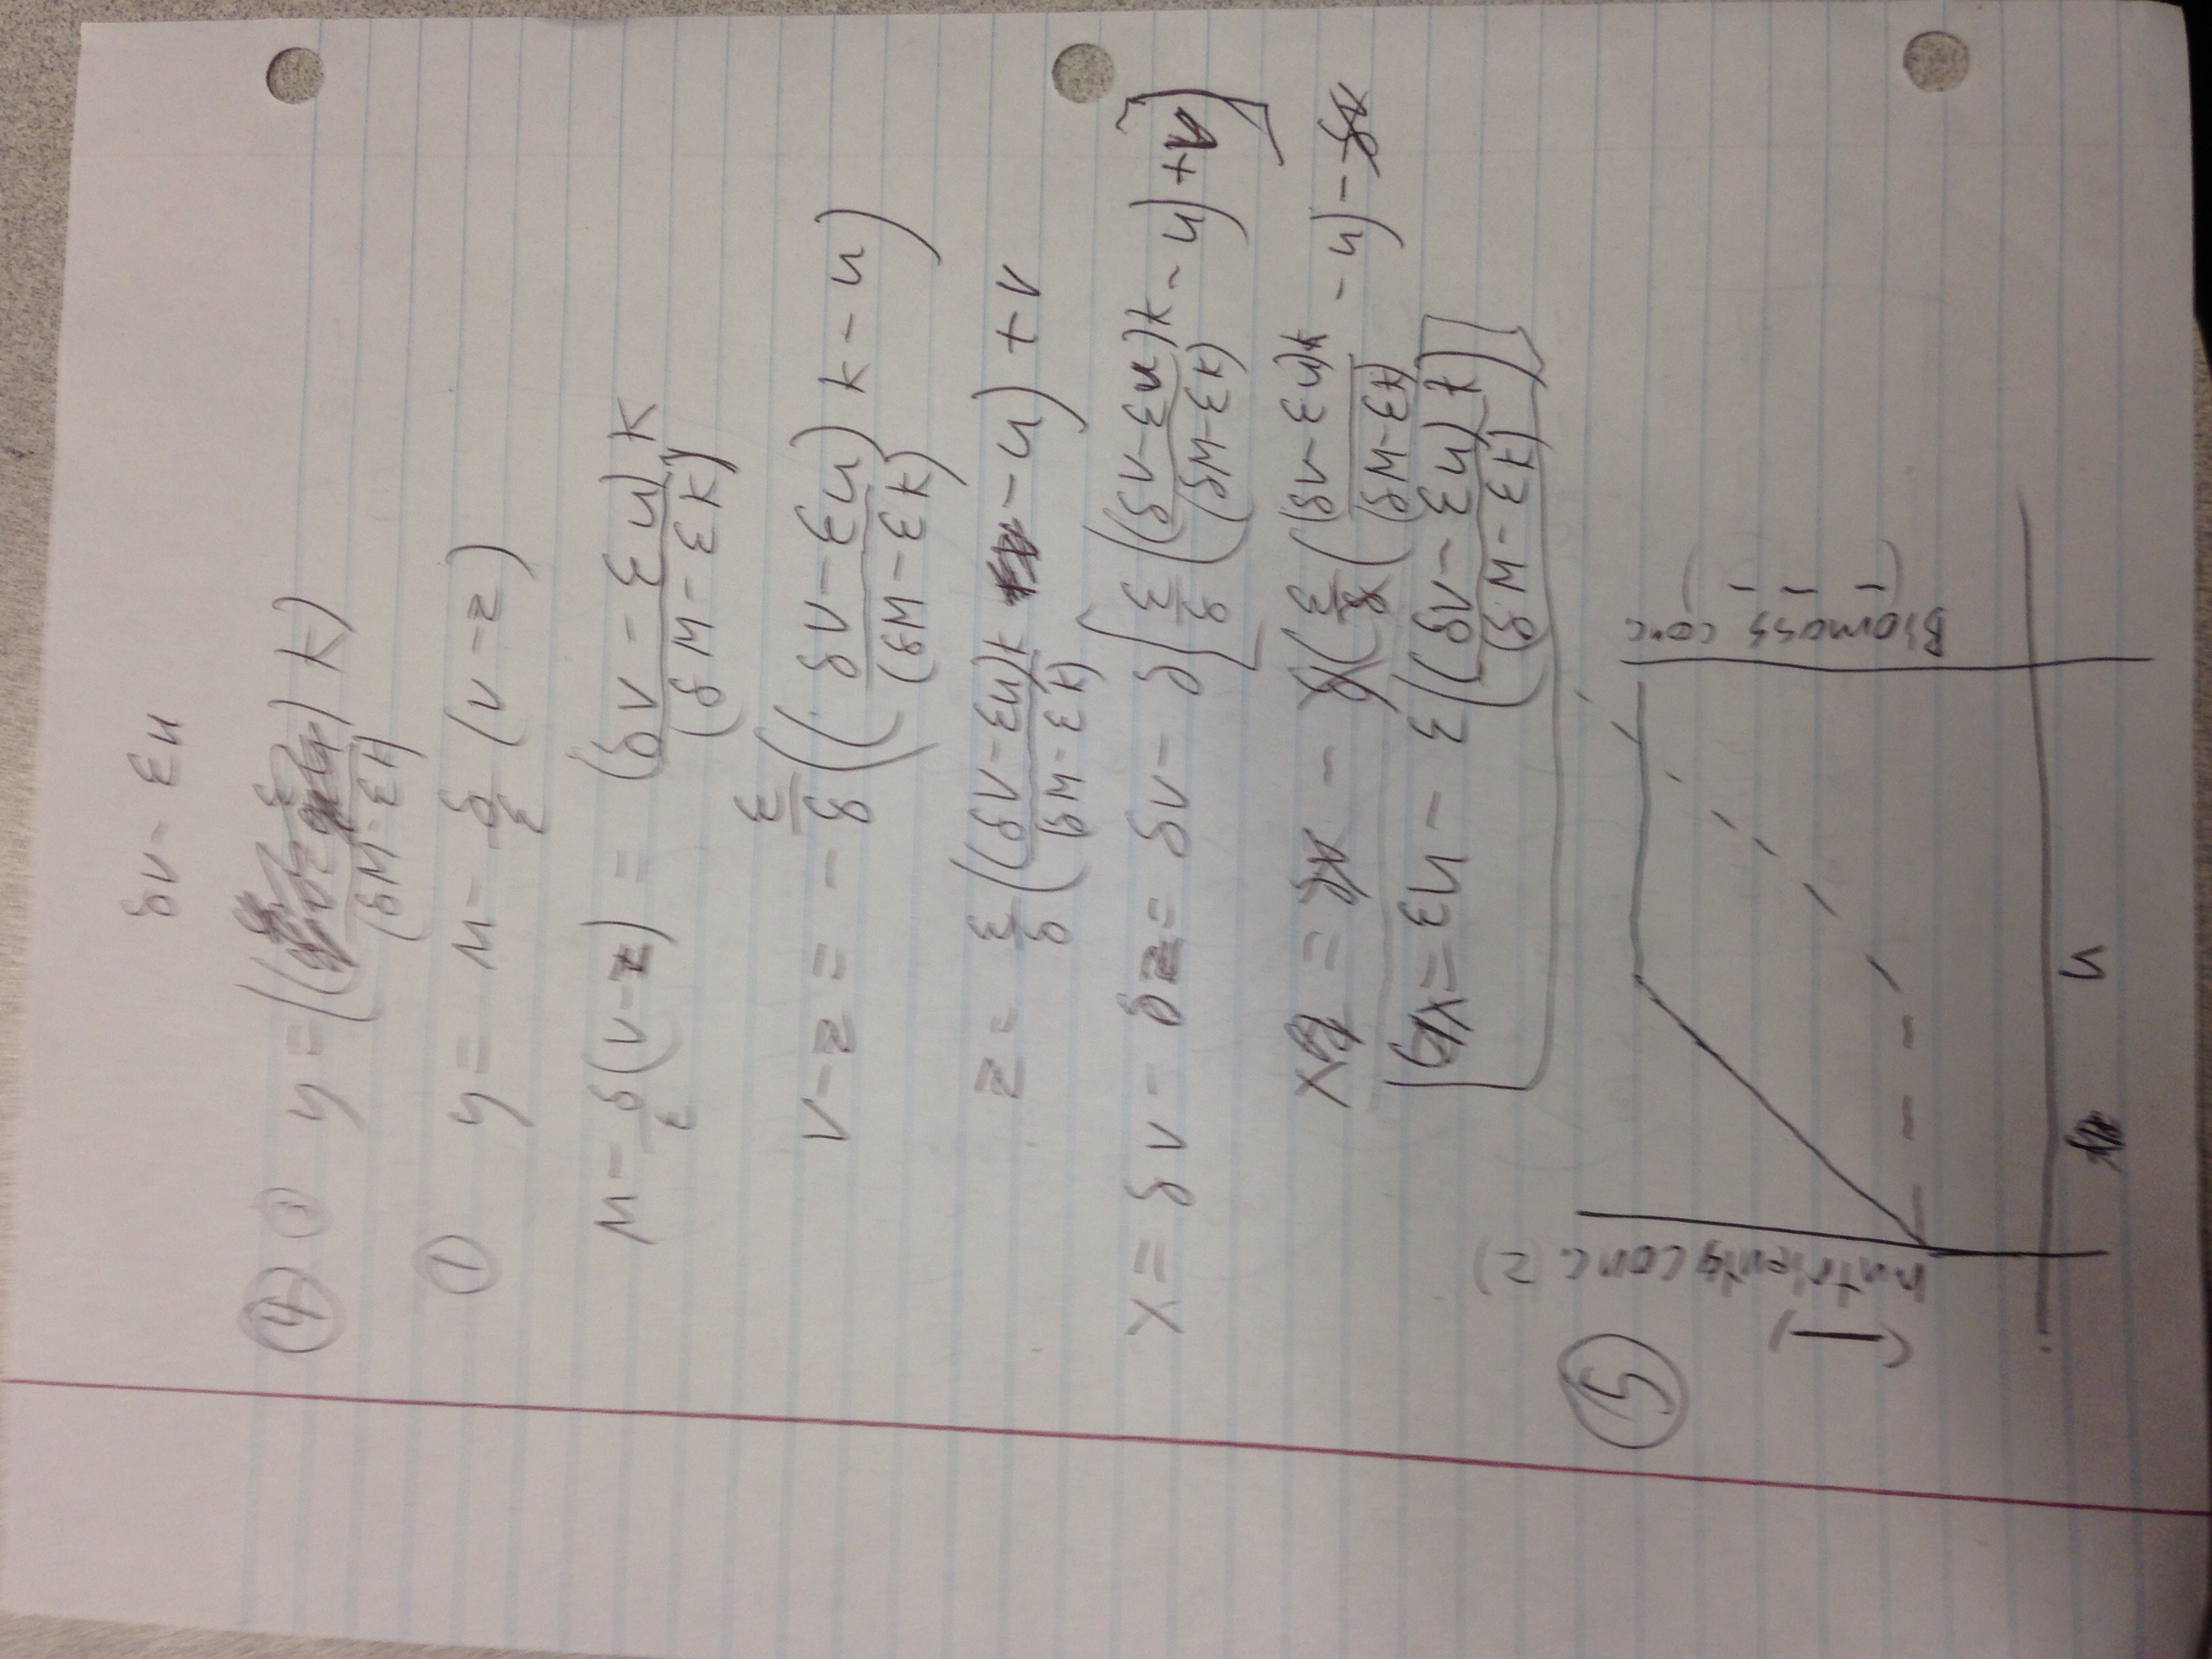 δv - εu
④ ① y = (( ) k)
(δM - εk)
① y = u - δ/ε (v - z)
u - δ/ε (v - z) = (δv - εu)/(δM - εk) k
v - z = - ε/δ ((δv - εu)/(δM - εk) k - u)
z = ε/δ ((δv - εu)k/(δM - εk) - u) + v
x = δv - δz = δv - δ[ε/δ ((δv - εu)k/(δM - εk) - u) + v]
x = - (ε/δ ((δv - εu)k/(δM - εk) - u) -
x = εu - ε((δv - εu)k/(δM - εk))
⑤
nutrient conc. z)
(—)
Biomass conc
(- - -)
u